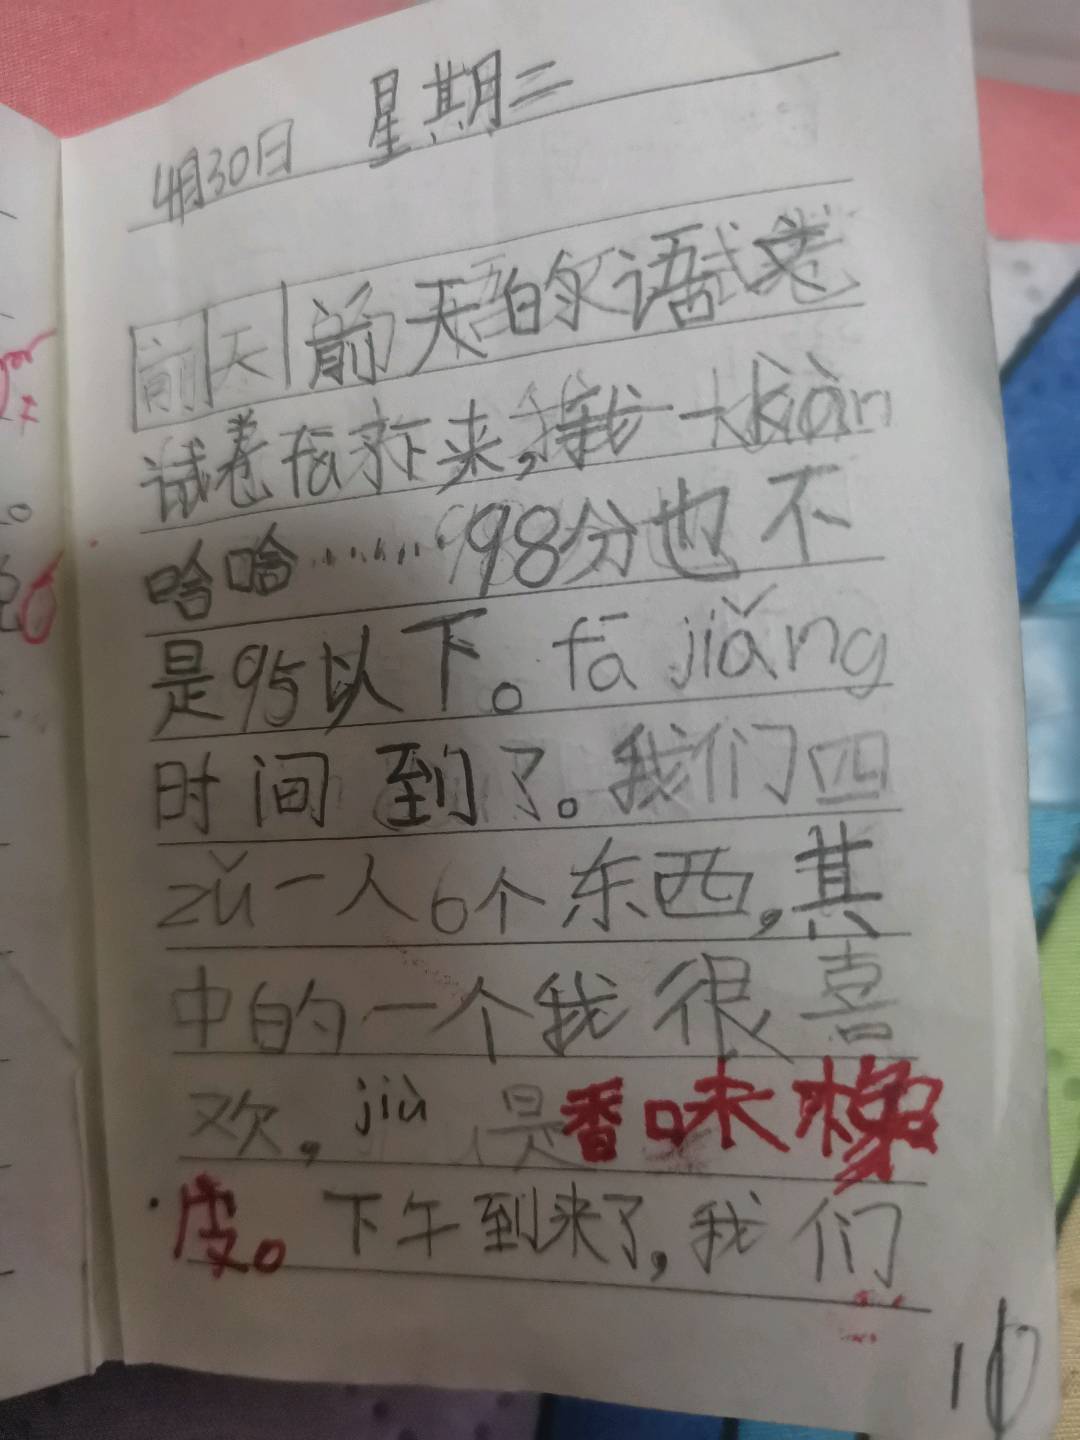 4月30日 星期二
前天 前天的语试卷
试卷fā下来,我一kàn
哈哈……98分也不
是95以下。fā jiǎng
时间到了。我们四
zǔ一人6个东西,其
中的一个我很喜
欢,jiù是香味橡
皮。下午到来了,我们